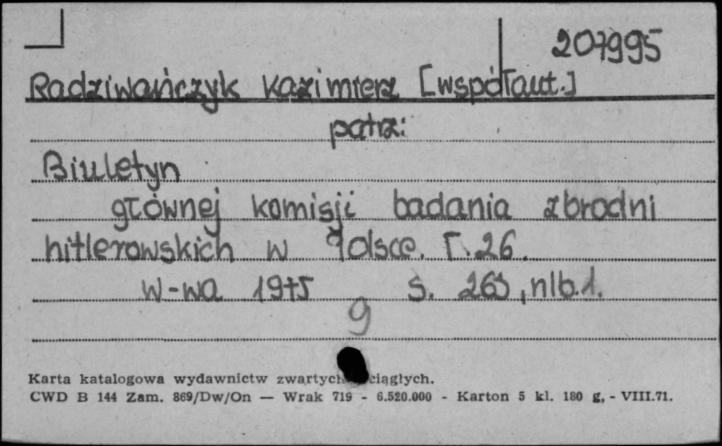 207995
Radziwańczyk Kazimierz [współaut.]
patrz:
Biuletyn
głównej komisji badania zbrodni
hitlerowskich w Polsce. T. 26.
W-wa 1975 s. 265, nlb.1.
9
Karta katalogowa wydawnictw zwartych ciągłych.
CWD B 144 Zam. 869/Dw/On — Wrak 719 - 6.520.000 - Karton 5 kl. 180 g, - VIII.71.